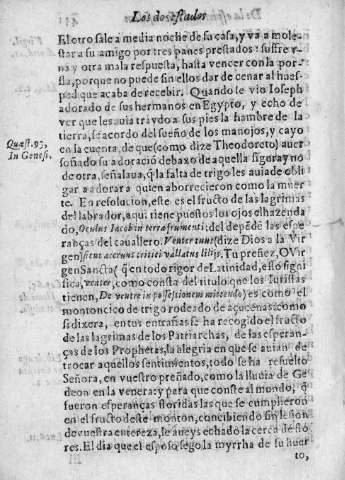 Los dos estados
El otro sale a media noche de su casa, y va a moles-
tar a su amigo por tres panes prestados: suffre v-
na y otra mala respuesta, hasta vencer con la por-
fia, porque no puede sin ellos dar de cenar al hues-
ped que acaba de recebir. Quando se vio Ioseph
adorado de sus hermanos en Egypto, y echo de
ver que les auia traydo a sus pies la hambre de la
tierra, se acordo del sueño de los manojos, y cayo
Quæst. 95,
en la cuenta, de que (como dize Theodoreto) auer
In Genes.
soñado su adoraciõ debaxo de aquella figura y no
de otra, señalaua, q̃ la falta de trigo les auia de obli-
gar a adorar a quien aborrecieron como la muer
te. En resolution, este es el fructo de las lagrimas
del labrador, aqui tiene puestos los ojos el hazenda
do, Oculus Iacob in terra frumenti: del depẽde las espe-
ranças del cauallero. Venter tuus (dize Dios a la Vir
gen) sicut aceruus tritici vallatus lilijs. Tu preñez, O Vir
gen Sancta (q̃ en todo rigor de Latinidad, esso signi
fica, venter, como consta del titulo que los Iuristas
tienen, De ventre in possessionem mittendo) es como el
montoncico de trigo rodeado de açucenas: como
si dixera, en tus entrañas se ha recogido el fructo
de las lagrimas de los Patriarchas, de las esperan-
ças de los Prophetas, la alegria en que se auian de
trocar aquellos sentimientos, todo se ha resuelto
Señora, en vuestro preñado, como la lluuia de Ge
deon en la venera: y para que conste al mundo, q̃
fueron esperanças floridas las que se cumplieron
en el fructo deste monton, concibiendo sin lesion
de vuestra entereza, le aueys echado la cerca de flo
res. El dia que el esposo sego la myrrha de su huer
to,